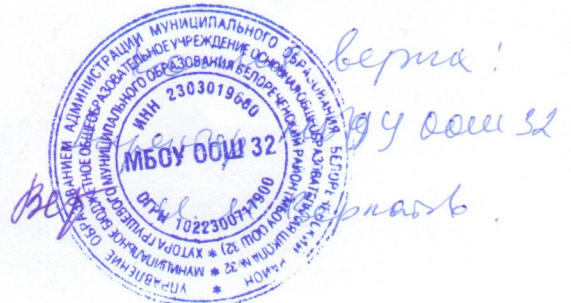 верна!
ООШ 32
УПРАВЛЕНИЕ ОБРАЗОВАНИЕМ АДМИНИСТРАЦИИ МУНИЦИПАЛЬНОГО ОБРАЗОВАНИЯ БЕЛОРЕЧЕНСКИЙ РАЙОН
МУНИЦИПАЛЬНОЕ БЮДЖЕТНОЕ ОБЩЕОБРАЗОВАТЕЛЬНОЕ УЧРЕЖДЕНИЕ ОСНОВНАЯ ОБЩЕОБРАЗОВАТЕЛЬНАЯ ШКОЛА № 32
ХУТОРА ГРУШЕВОГО МУНИЦИПАЛЬНОГО ОБРАЗОВАНИЯ БЕЛОРЕЧЕНСКИЙ РАЙОН (МБОУ ООШ 32)
ИНН 2303019660
МБОУ ООШ 32
ОГРН 1022300717900